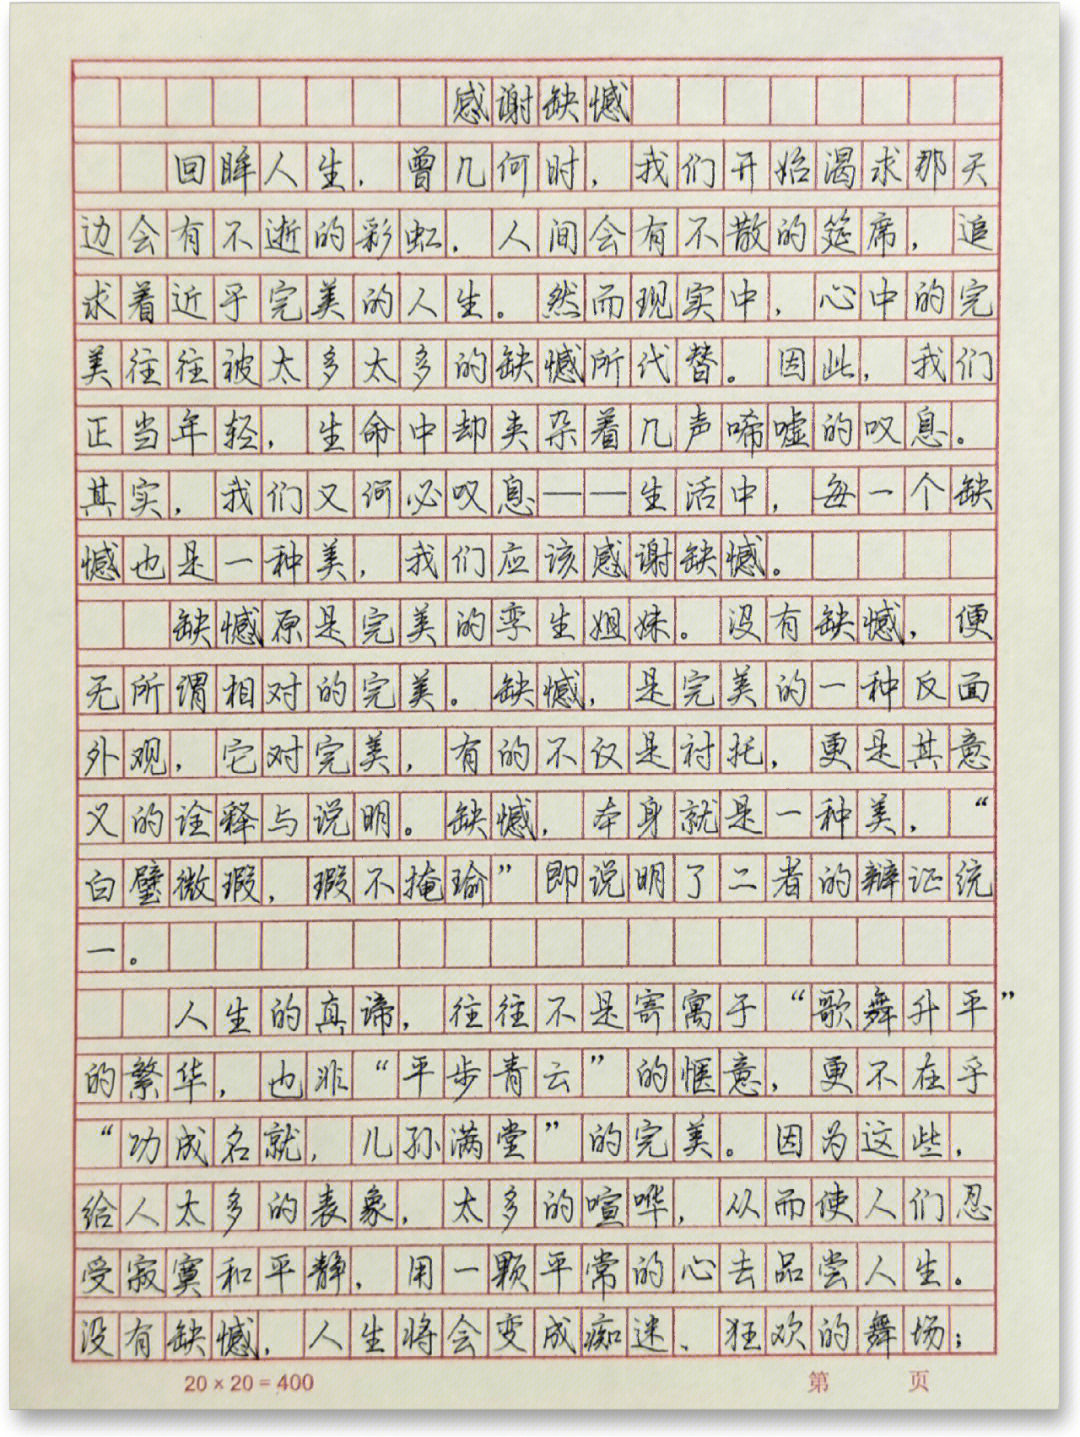 感谢缺憾
回眸人生，曾几何时，我们开始渴求那天
边会有不逝的彩虹，人间会有不散的筵席，追
求着近乎完美的人生。然而现实中，心中的完
美往往被太多太多的缺憾所代替。因此，我们
正当年轻，生命中却夹杂着几声唏嘘的叹息。
其实，我们又何必叹息——生活中，每一个缺
憾也是一种美，我们应该感谢缺憾。
缺憾原是完美的孪生姐妹。没有缺憾，便
无所谓相对的完美。缺憾，是完美的一种反面
外观，它对完美，有的不仅是衬托，更是其意
义的诠释与说明。缺憾，本身就是一种美，“
白璧微瑕，瑕不掩瑜”即说明了二者的辩证统
一。
人生的真谛，往往不是寄寓于“歌舞升平”
的繁华，也非“平步青云”的惬意，更不在乎
“功成名就，儿孙满堂”的完美。因为这些，
给人太多的表象，太多的喧哗，从而使人们忍
受寂寞和平静，用一颗平常的心去品尝人生。
没有缺憾，人生将会变成痴迷、狂欢的舞场；
20×20=400
第 页